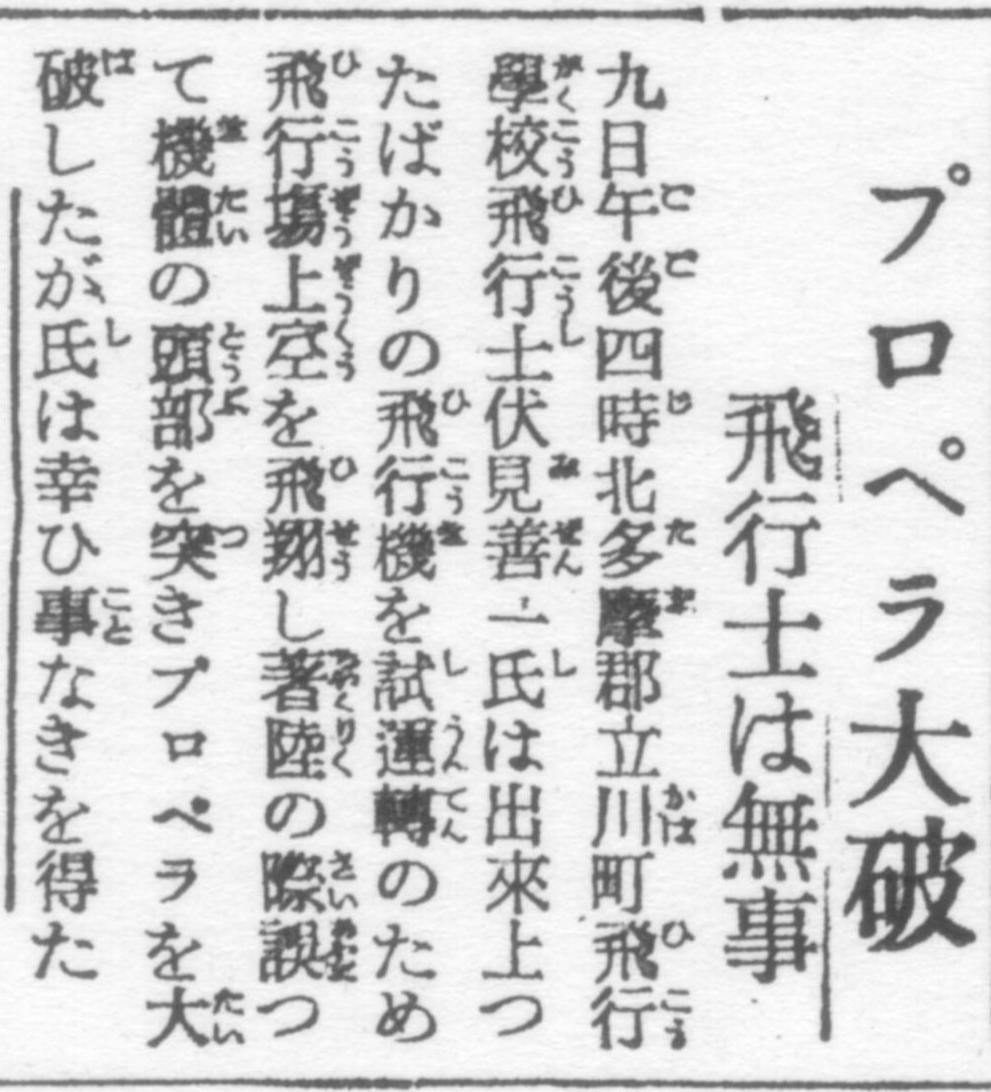 プロペラ大破
飛行士は無事
九日午後四時北多摩郡立川町飛行
學校飛行士伏見善一氏は出來上つ
たばかりの飛行機を試運轉のため
飛行場上空を飛翔し著陸の際誤つ
て機體の頭部を突きプロペラを大
破したが氏は幸ひ事なきを得た